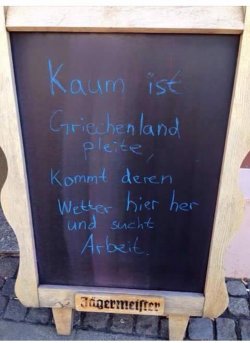 Kaum ist
Griechenland
pleite,
Kommt deren
Wetter hier her
und sucht
Arbeit.
Jägermeister